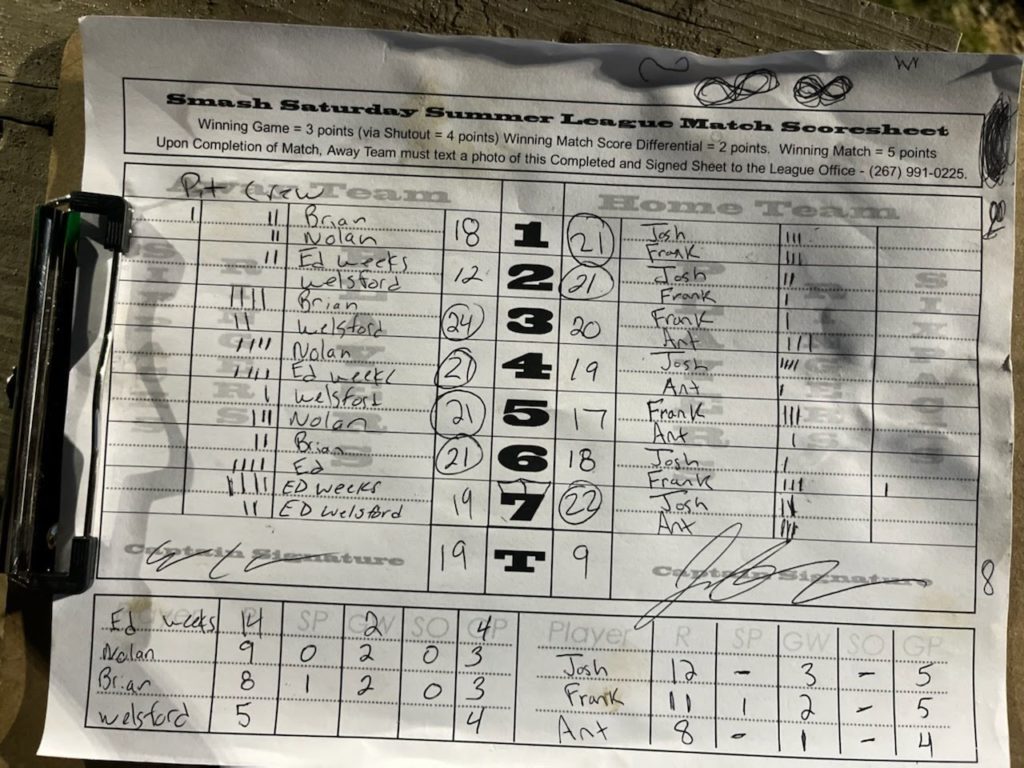 Smash Saturday Summer League Match Scoresheet
Winning Game = 3 points (via Shutout = 4 points) Winning Match Score Differential = 2 points. Winning Match = 5 points
Upon Completion of Match, Away Team must text a photo of this Completed and Signed Sheet to the League Office - (267) 991-0225.
Away Team Pit Crew Home Team
Brian 18 1 21 Josh
Nolan Frank
Ed weeks 12 2 21 Josh
welsford Frank
Brian 24 3 20 Frank
welsford Ant
Nolan 21 4 19 Josh
Ed weeks Ant
welsford 21 5 17 Frank
Nolan Ant
Brian 21 6 18 Josh
Ed Frank
ED weeks 19 7 22 Josh
ED welsford Ant
Captain Signature 19 T 9 Captain Signature
8
Player R SP GW SO GP Player R SP GW SO GP
Ed weeks 14 2 4
Nolan 9 0 2 0 3 Josh 12 - 3 - 5
Brian 8 1 2 0 3 Frank 11 1 2 - 5
welsford 5 4 Ant 8 - 1 - 4